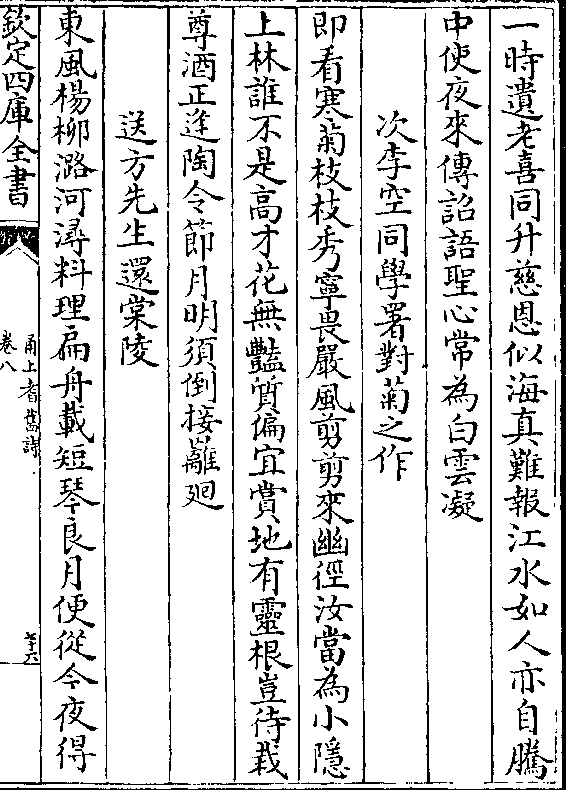 一時遺老喜同升慈恩似海真難報江水如人亦自騰
中使夜來傳詔語聖心常為白雲凝
次李空同學署對菊之作
即看寒菊枝枝秀寧畏嚴風剪剪來幽徑汝當為小隱
上林誰不是高才花無豔質偏宜賞地有靈根豈待栽
尊酒正逢陶令節月明須倒接䍦廻
送方先生還棠陵
東風楊柳潞河潯料理扁舟載短琴良月便從今夜得
欽定四庫全書
甬上耆舊詩
卷八